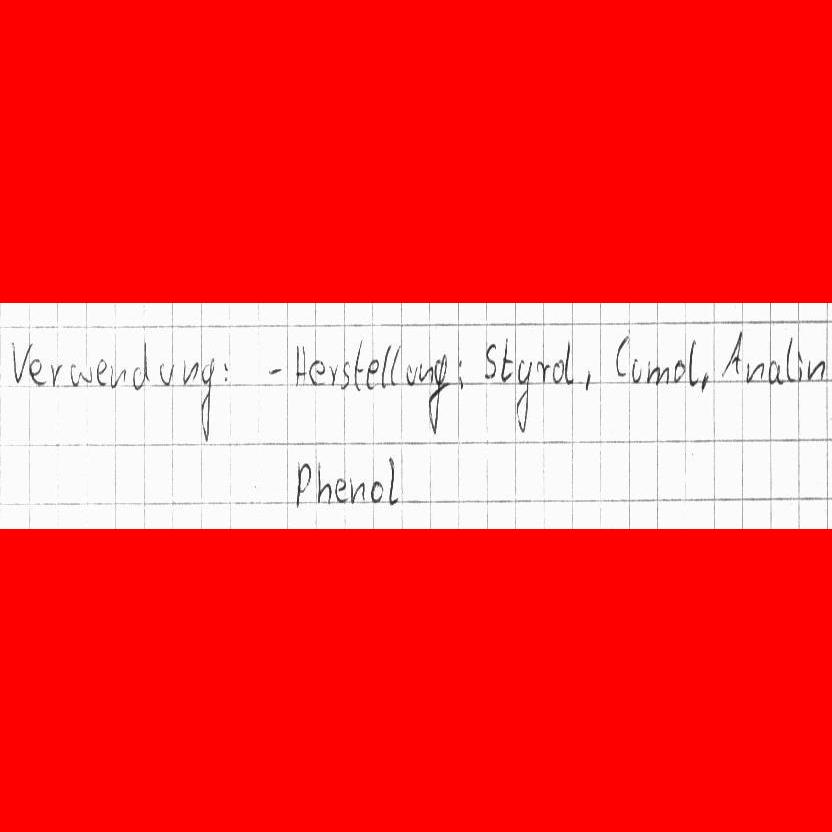 Verwendung: - Herstellung: Styrol, Cumol, Analin
Phenol